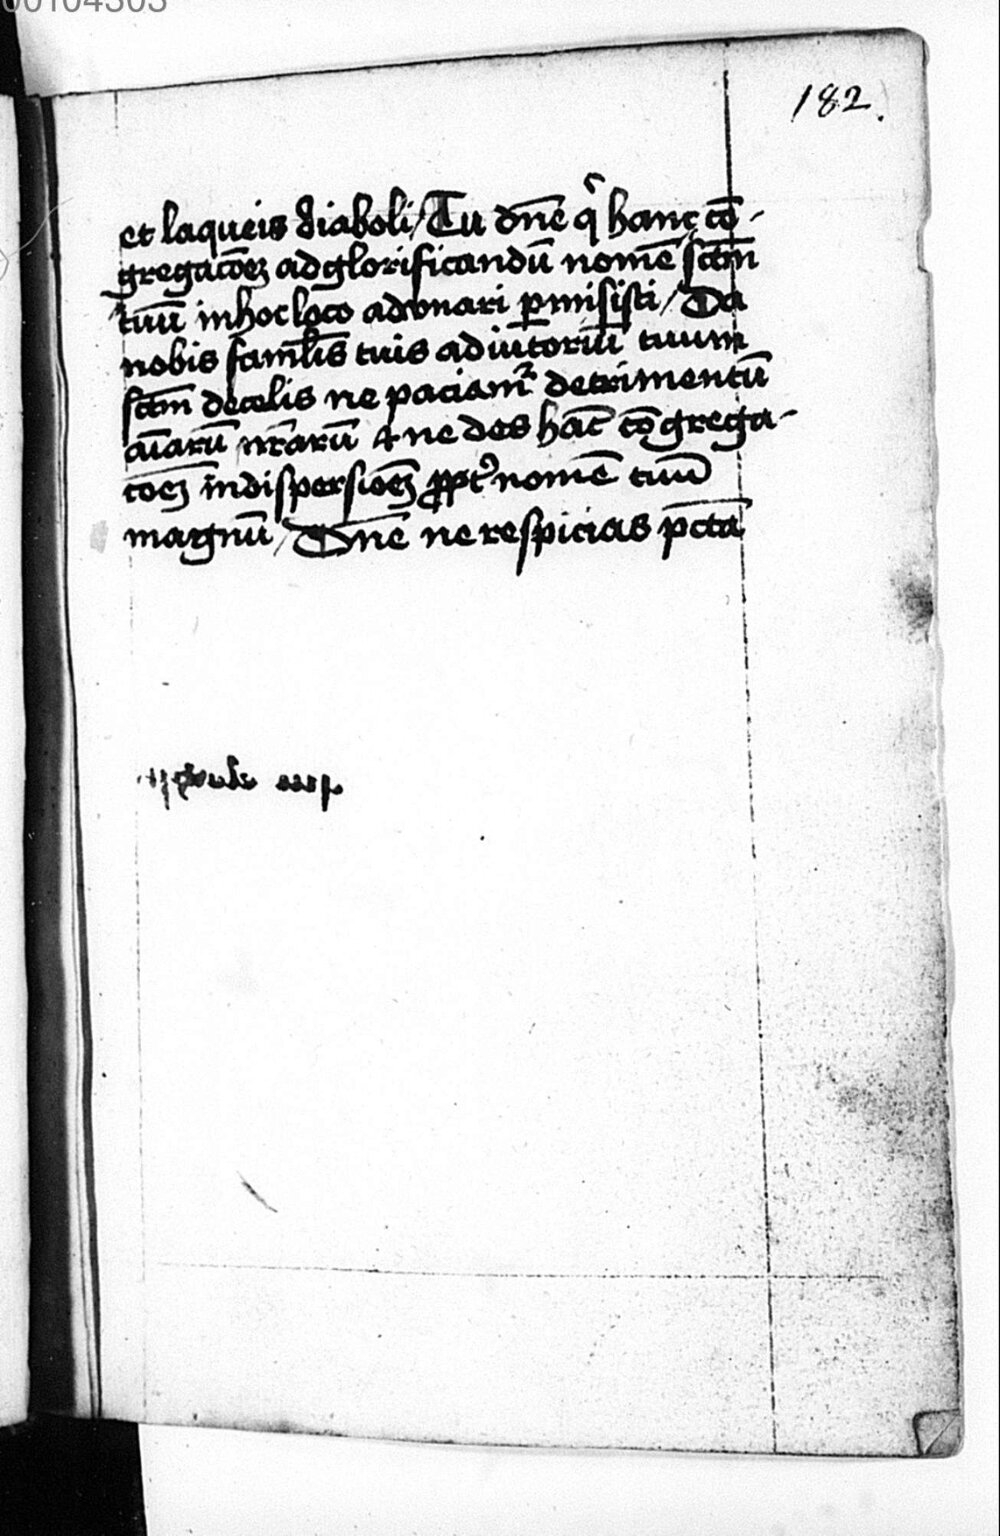 00104303
182.
et laqueis diaboli / Tu dn̄e qͥ hanc cō-
gregac̄oeꝫ ad glorificandū nomē sc̄tm
tuū in hoc loco adonari ꝑmisisti / Da
nobis faml̄is tuis adiut̄oriū tuum
sc̄tm de celis ne paciamᷣ detrimentū
aīarū nr̄arū ⁊ ne des hāc cōgrega-
c̄oeꝫ in dispersioēꝫ ꝓpt̾ nomē tuū
magnū / Dn̄e ne respicias pc̄ta